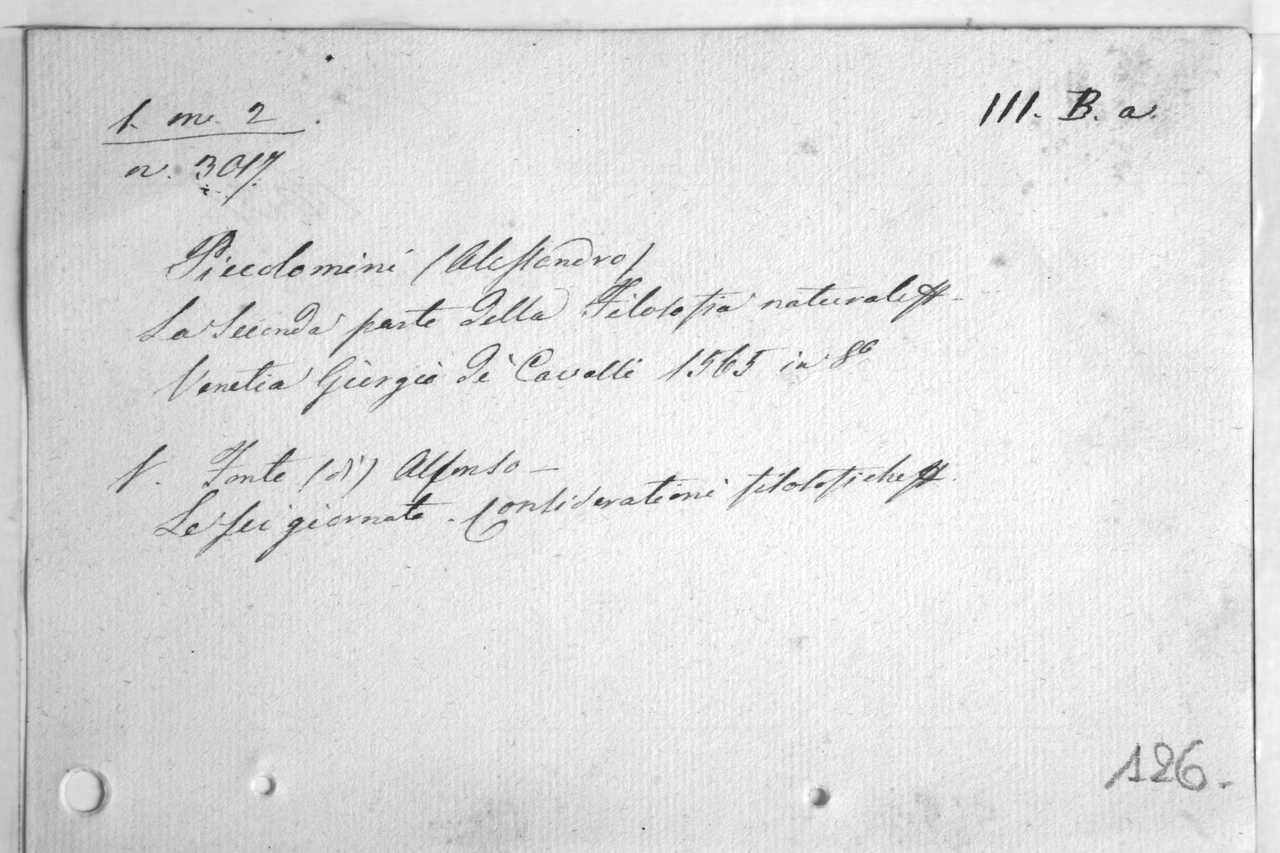 1. m. 2
III. B. a.
n. 3017
Piccolomini (Alessandro)
La Seconda parte della Filosofia naturale
Venetia Giorgio de' Cavalli 1565 in 8o
V. Fonte (di) Alfonso —
Le sei giornate. Considerationi filosofiche
126.